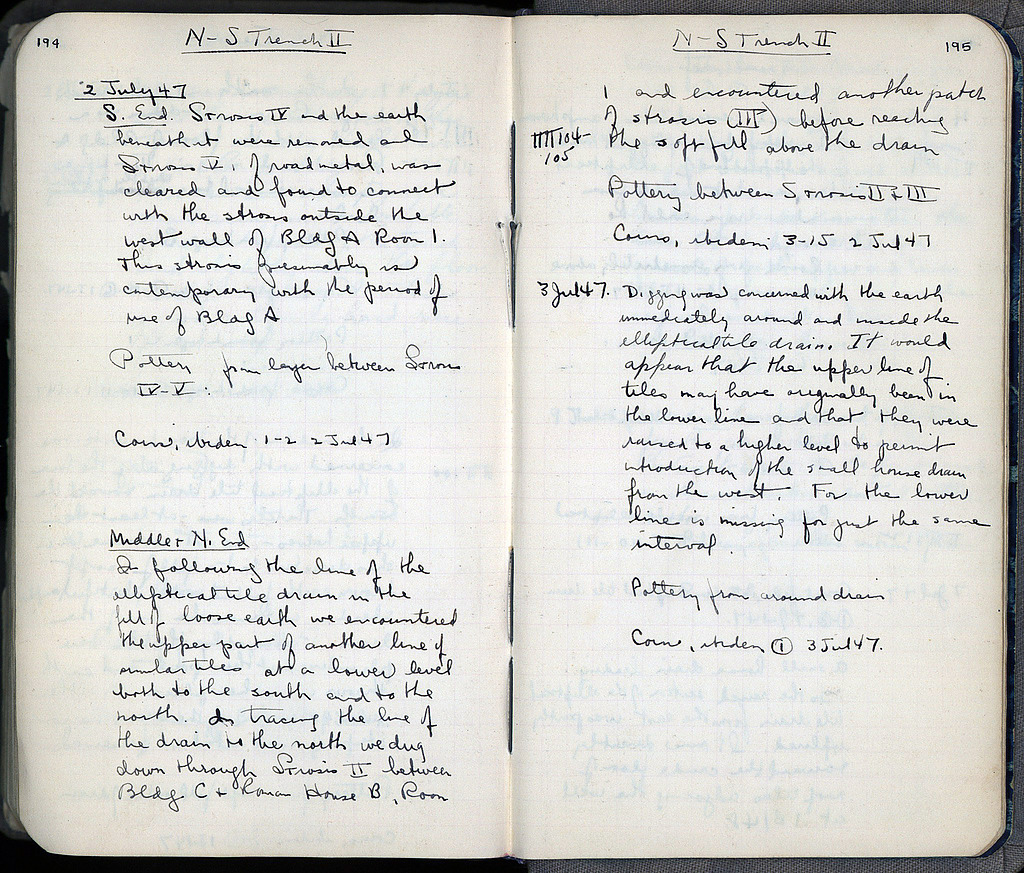 194
N-S Trench II
2 July 47
S. End. Strosis IV and the earth
beneath it were removed and
Strosis V, of road metal, was
cleared and found to connect
with the strosis outside the
west wall of Bldg A Room 1.
This strosis presumably is
contemporary with the period of
use of Bldg A
Pottery from layer between Strosis
IV-V.
Coins, ibidem 1-2 2 Jul 47
Middle + N. End
In following the line of the
elliptical tile drain in the
fill of loose earth we encountered
the upper part of another line of
similar tiles at a lower level
both to the south and to the
north. In tracing the line of
the drain to the north we dug
down through Strosis II between
Bldg C + Roman House B, Room
N-S Trench II
195
1 and encountered another patch
of strosis (III) before reaching
the soft fill above the drain
104-
105
Pottery between Strosis II + III
Coins, ibidem; 3-15 2 Jul 47
3 Jul 47. Digging was concerned with the earth
immediately around and inside the
elliptical tile drain. It would
appear that the upper line of
tiles may have originally been in
the lower line and that they were
raised to a higher level to permit
introduction of the small house drain
from the west. For the lower
line is missing for just the same
interval.
Pottery from around drain
Coin, ibidem 1 3 Jul 47.